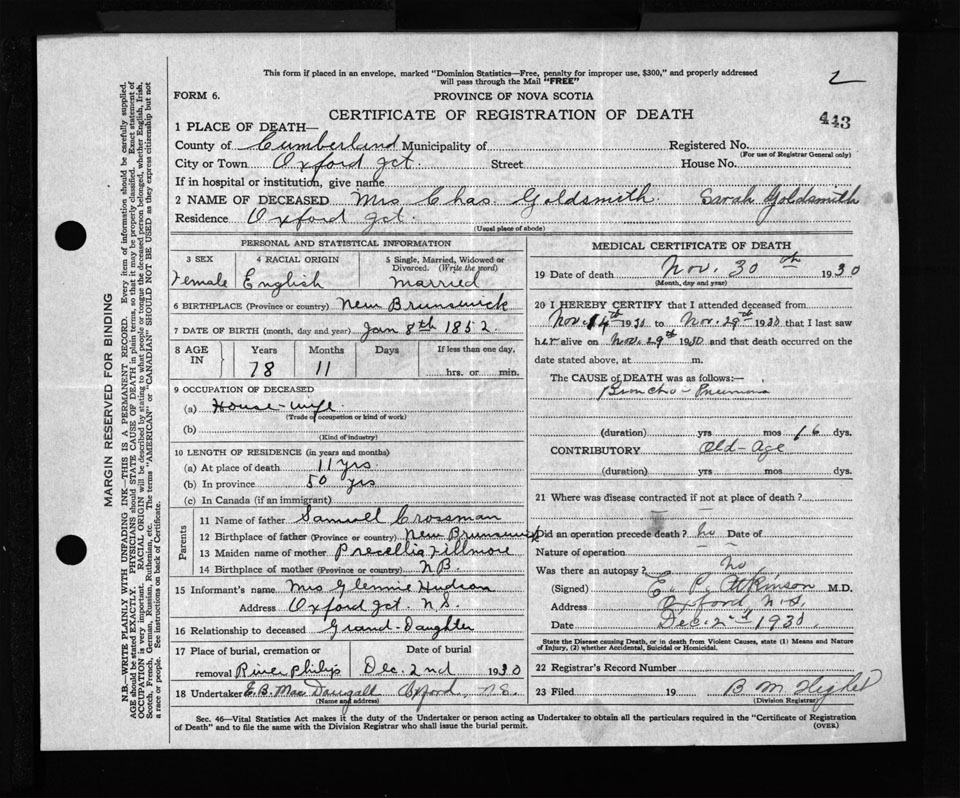 This form if placed in an envelope, marked "Dominion Statistics—Free, penalty for improper use, $300," and properly addressed
will pass through the Mail "FREE"
2
FORM 6.
PROVINCE OF NOVA SCOTIA
CERTIFICATE OF REGISTRATION OF DEATH
443
1 PLACE OF DEATH—
County of Cumberland Municipality of Registered No.
(For use of Registrar General only)
City or Town Oxford Jct. Street House No.
If in hospital or institution, give name
2 NAME OF DECEASED Mrs Chas. Goldsmith. Sarah Goldsmith
Residence Oxford Jct.
(Usual place of abode)
PERSONAL AND STATISTICAL INFORMATION
3 SEX 4 RACIAL ORIGIN 5 Single, Married, Widowed or
Divorced. (Write the word)
Female English Married
6 BIRTHPLACE (Province or country) New Brunswick
7 DATE OF BIRTH (month, day and year) Jan 8th 1852.
8 AGE IN Years Months Days If less than one day,
78 11 hrs. or min.
9 OCCUPATION OF DECEASED
(a) House-wife
(Trade of occupation or kind of work)
(b)
(Kind of industry)
10 LENGTH OF RESIDENCE (in years and months)
(a) At place of death 11 yrs
(b) In province 50 yrs
(c) In Canada (if an immigrant)
Parents
11 Name of father Samuel Crossman
12 Birthplace of father (Province or country) New Brunswick
13 Maiden name of mother Precellia Fillmore
14 Birthplace of mother (Province or country) N.B.
15 Informant's name Mrs Glennie Hudson
Address Oxford Jct. N.S.
16 Relationship to deceased Grand-Daughter
17 Place of burial, cremation or Date of burial
removal River philip Dec. 2nd 1930
18 Undertaker E.B. MacDougall Oxford, N.S.
(Name and address)
MEDICAL CERTIFICATE OF DEATH
19 Date of death Nov. 30th 1930
(Month, day and year)
20 I HEREBY CERTIFY that I attended deceased from
Nov. 14th 1930 to Nov. 29th 1930 that I last saw
her alive on Nov. 29th 1930 and that death occurred on the
date stated above, at m.
The CAUSE OF DEATH was as follows:—
Broncho-Pneumonia
(duration) yrs mos 16 dys.
CONTRIBUTORY Old-Age
(duration) yrs. mos. dys.
21 Where was disease contracted if not at place of death?
Did an operation precede death? No Date of
Nature of operation
Was there an autopsy? No
(Signed) E. P. Atkinson M.D.
Address Oxford, N.S.
Date Dec. 2nd, 1930.
State the Disease Causing Death, or in death from Violent Causes, state (1) Means and Nature
of Injury, (2) whether Accidental, Suicidal or Homicidal.
22 Registrar's Record Number
23 Filed 19 B. M.
(Division Registrar)
Sec. 46—Vital Statistics Act makes it the duty of the Undertaker or person acting as Undertaker to obtain all the particulars required in the "Certificate of Registration
of Death" and to file the same with the Division Registrar who shall issue the burial permit.
(OVER)
MARGIN RESERVED FOR BINDING
N.B.—WRITE PLAINLY WITH UNFADING INK—THIS IS A PERMANENT RECORD. Every item of information should be carefully supplied.
AGE should be stated EXACTLY. PHYSICIANS should STATE CAUSE OF DEATH in plain terms, so that it may be properly classified. Exact statement of
OCCUPATION is very important. RACIAL ORIGIN will be described by stating to what people or tongue the deceased person belonged, whether English, Irish,
Scotch, French, German, Russian, Ruthenian, etc. The terms "AMERICAN" or "CANADIAN" SHOULD NOT BE USED as they express citizenship but not
a race or people. See instructions on back of Certificate.